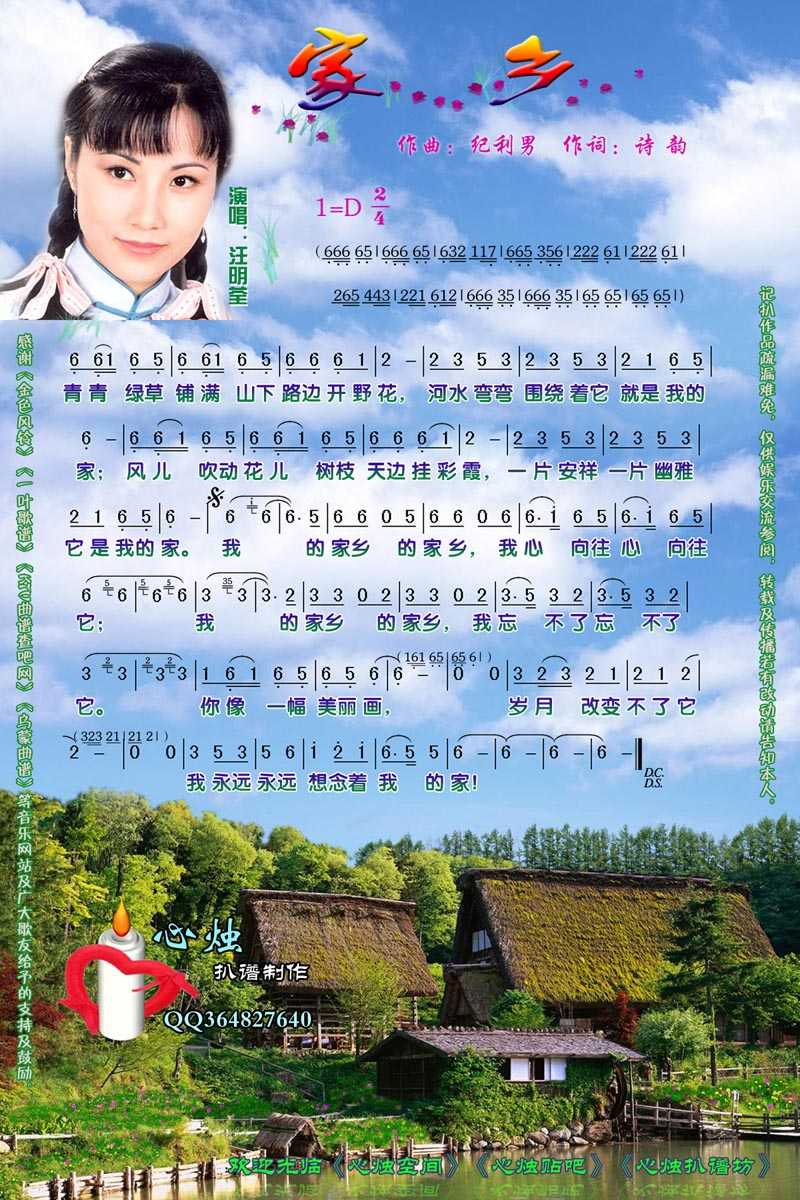 家乡
作曲：纪利男 作词：诗韵
演唱：汪明荃
1=D 2/4
(666 65|666 65|632 117|665 356|222 61|222 61|
265 443|221 612|666 35|666 35|65 65|65 65|)
6 61 6 5|6 61 6 5|6 6 6 1|2 －|2 3 5 3|2 3 5 3|2 1 6 5|
青青 绿草 铺满 山下 路边 开 野 花， 河水 弯弯 围绕 着它 就是 我的
6 －|6 6 1 6 5|6 6 1 6 5|6 6 6 1|2 －|2 3 5 3|2 3 5 3|
家； 风儿 吹动 花儿 树枝 天边 挂 彩 霞， 一 片 安祥 一片 幽雅
2 1 6 5|6 －|6 6|6· 5|6 6 0 5|6 6 0 6|6· 1 6 5|6· 1 6 5|
它 是 我的 家。 我 的 家乡 的 家乡， 我 心 向往 心 向往
6 6|6 6|3 3|3· 2|3 3 0 2|3 3 0 2|3· 5 3 2|3· 5 3 2|
它； 我 的 家乡 的 家乡， 我 忘 不 了 忘 不 了
3 3|3 3|1 6 1|6 5 6 5|6 －|0 0|3 2 3|2 1 2|
它。 你像 一幅 美丽 画， 岁月 改变 不了 它
2 －|0 0|3 5 3|5 6|1 2 1|6· 5 5|6 －|6 －|6 －|6 －‖
(161 65|65 6|)
(323 21|21 2|)
我 永远 永远 想念着 我 的 家！
D.C.
D.S.
感谢《金色风铃》《一叶歌谱》《KOV曲谱查吧网》《乌蒙曲谱》等音乐网站及广大歌友给予的支持及鼓励
记扒作品疏漏难免，仅供娱乐交流参阅，转载及传播若有改动请告知本人。
心烛
扒谱制作
QQ364827640
欢迎光临《心烛空间》《心烛贴吧》《心烛扒谱坊》